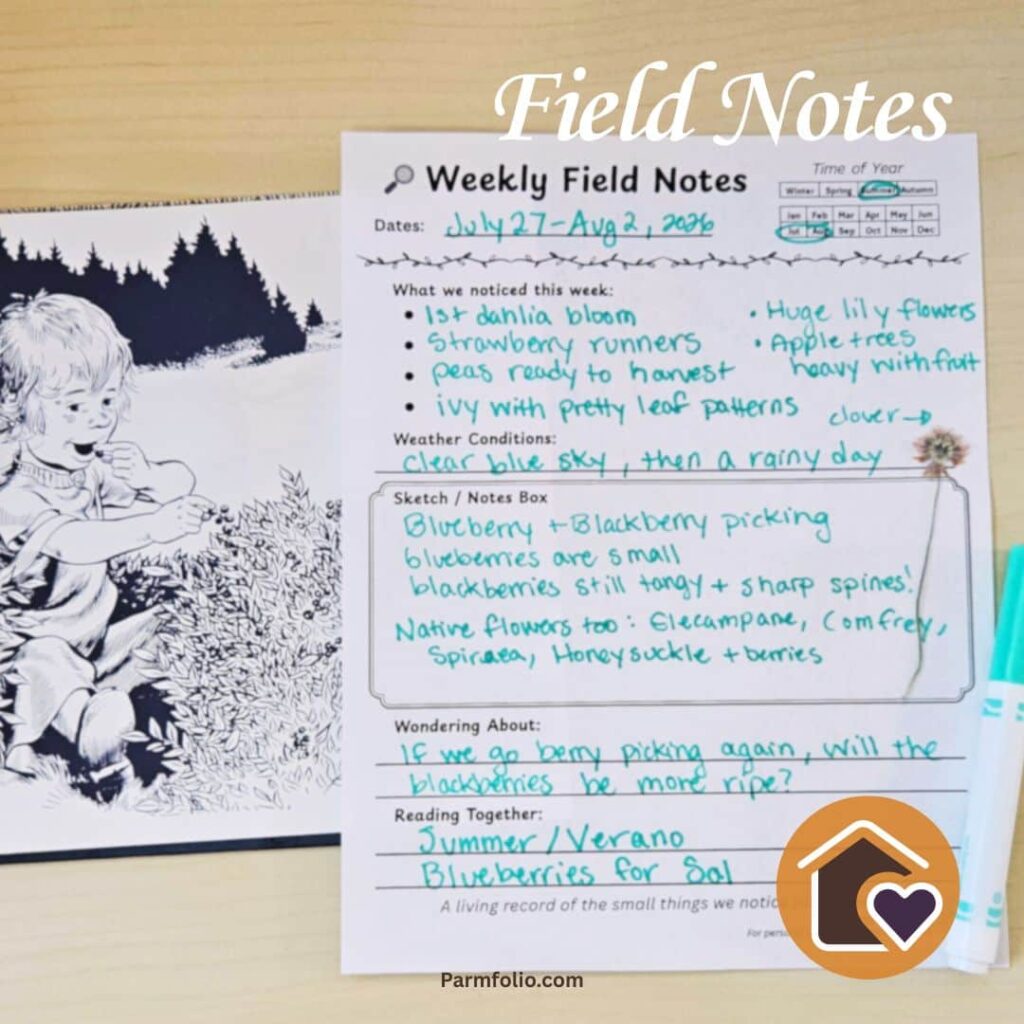 Field Notes
Weekly Field Notes
Time of Year
Winter Spring Summer Autumn
Jan Feb Mar Apr May Jun
Jul Aug Sep Oct Nov Dec
Dates: July 27-Aug 2, 2026
What we noticed this week:
• 1st dahlia bloom
• Strawberry runners
• peas ready to harvest
• ivy with pretty leaf patterns
• Huge lily flowers
• Apple trees
heavy with fruit
clover →
Weather Conditions:
clear blue sky, then a rainy day
Sketch / Notes Box
Blueberry + Blackberry picking
blueberries are small
blackberries still tangy + sharp spines!
Native flowers too: Elecampane, Comfrey,
Spiraea, Honeysuckle + berries
Wondering About:
If we go berry picking again, will the
blackberries be more ripe?
Reading Together:
Summer / Verano
Blueberries for Sal
A living record of the small things we notic
For perso
Parmfolio.com